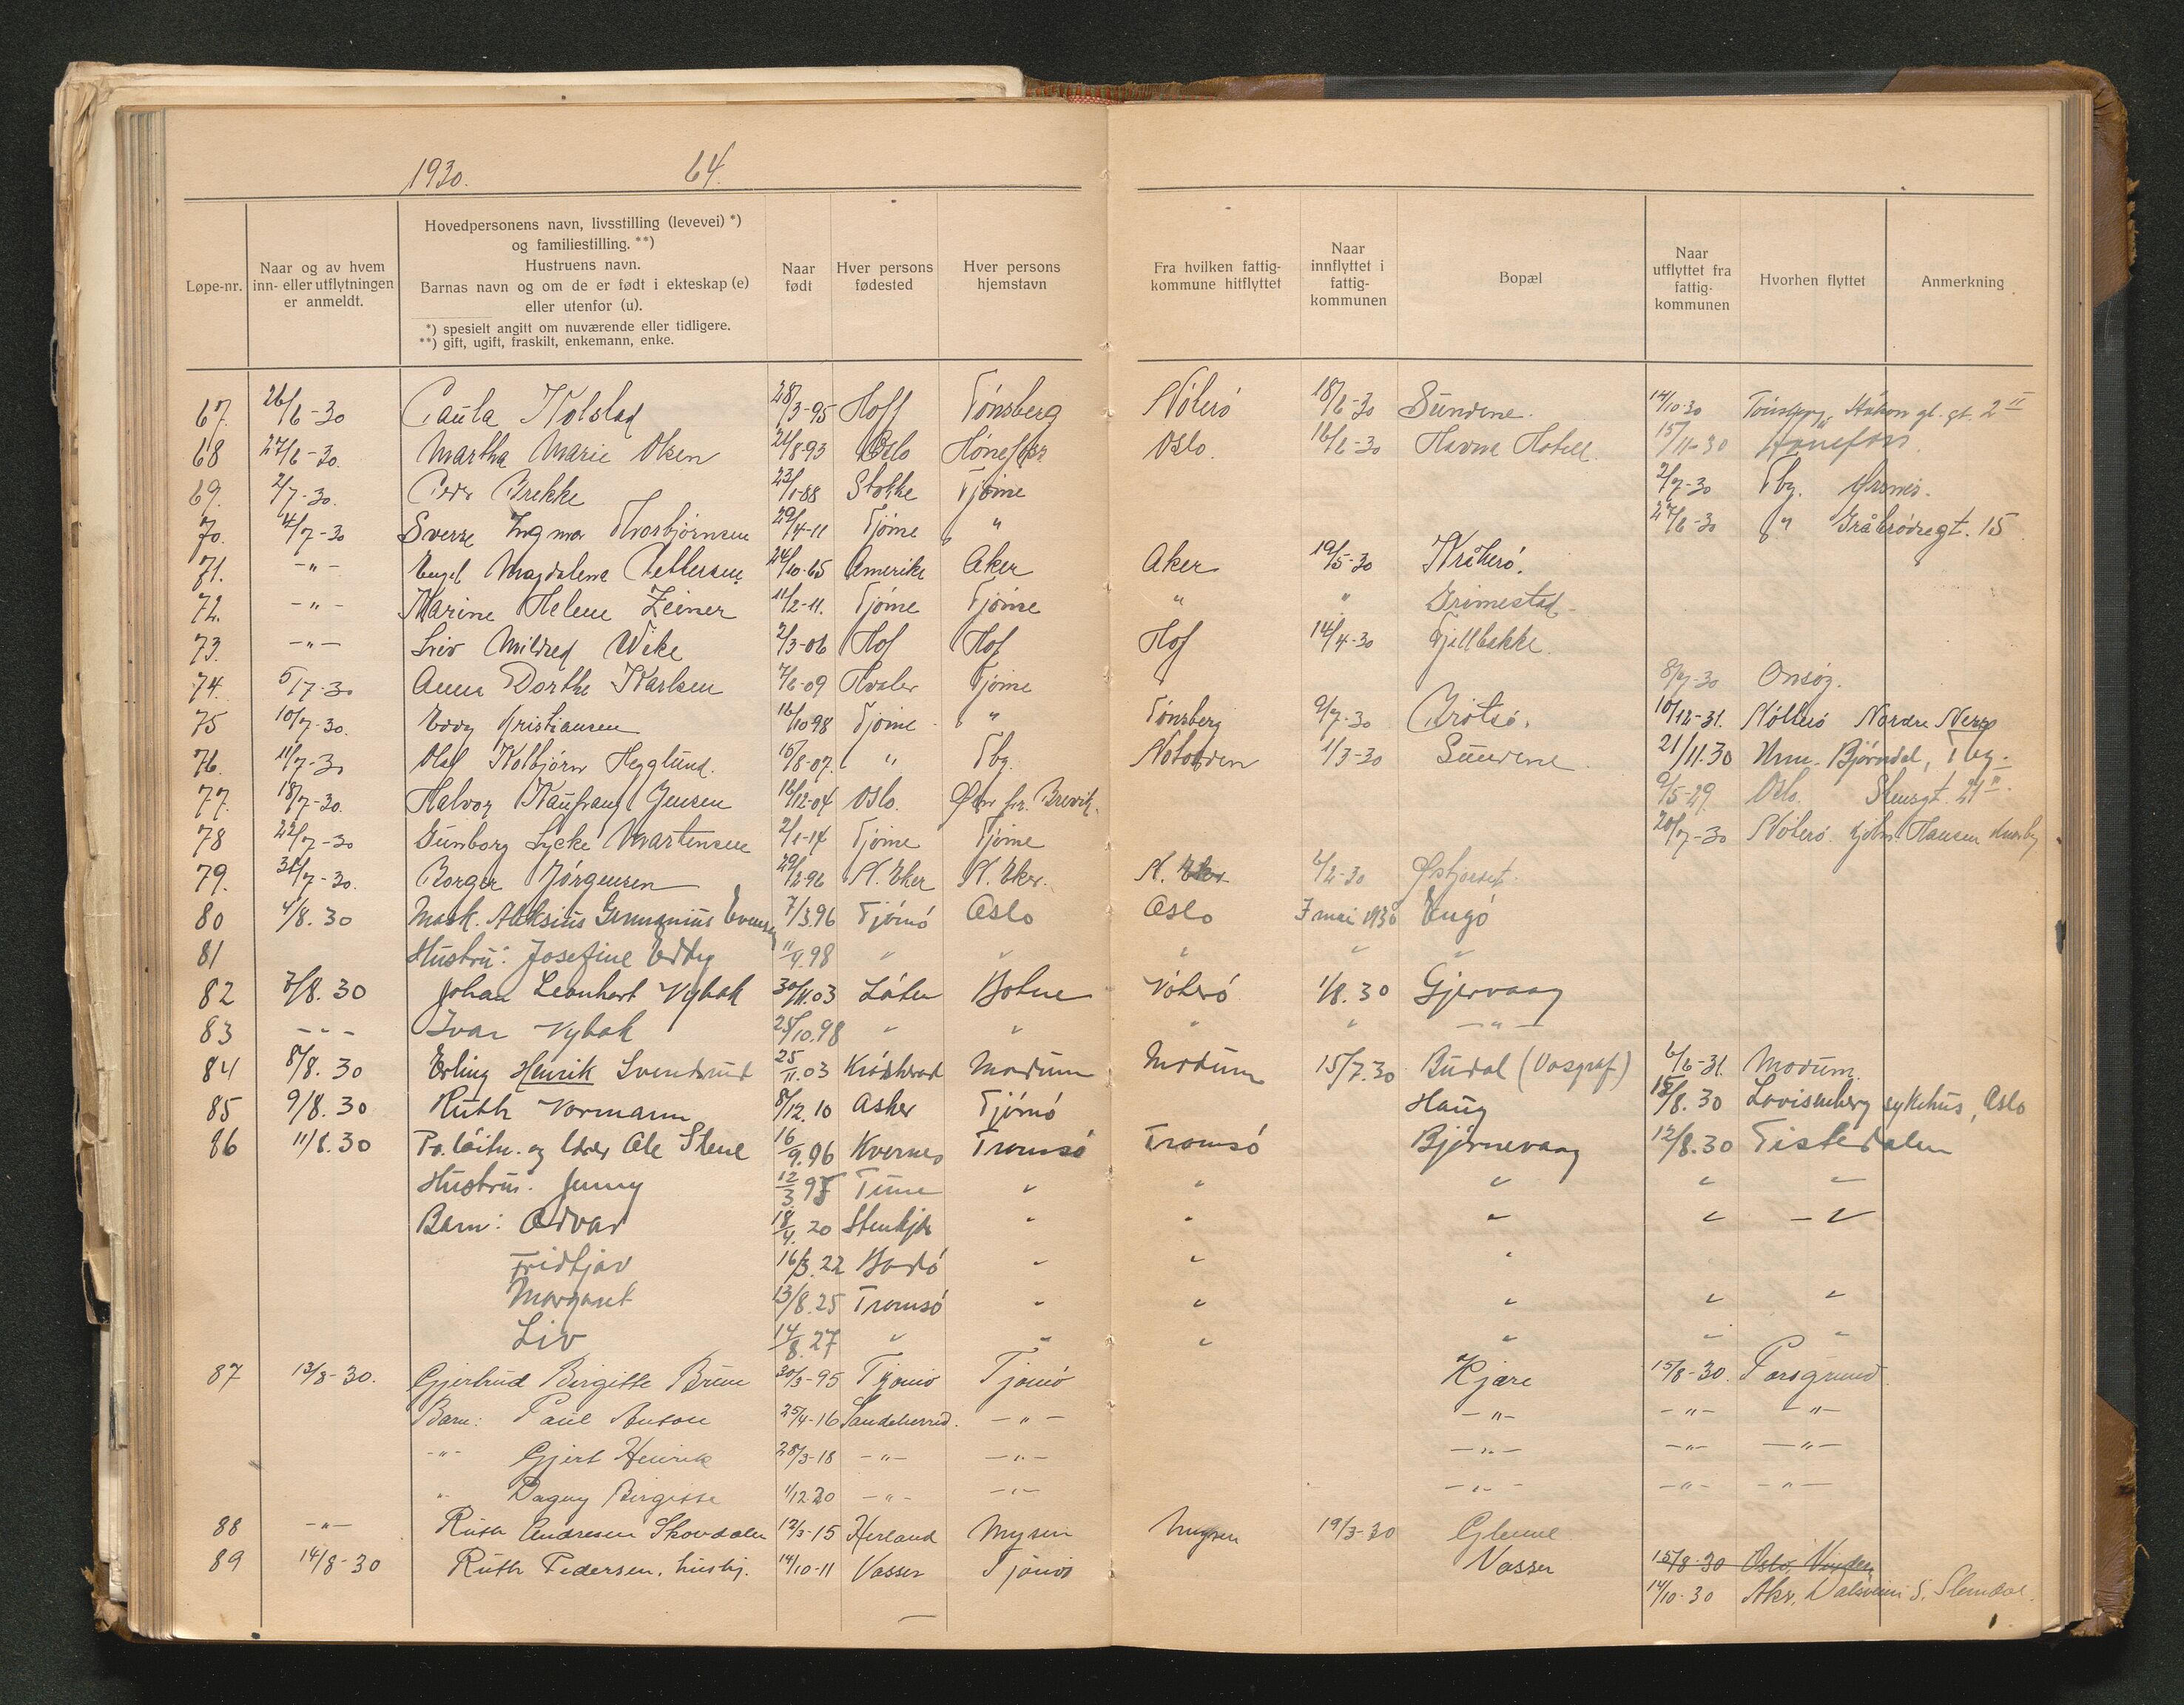 1930. 64.
Løpe-nr.
Naar og av hvem
inn- eller utflytningen
er anmeldt.
Hovedpersonens navn, livsstilling (levevei) *)
og familiestilling. **)
Hustruens navn.
Barnas navn og om de er født i ekteskap (e)
eller utenfor (u).
*) spesielt angitt om nuværende eller tidligere.
**) gift, ugift, fraskilt, enkemann, enke.
Naar
født
Hver persons
fødested
Hver persons
hjemstavn
Fra hvilken fattig-
kommune hitflyttet
Naar
innflyttet i
fattig-
kommunen
Bopæl
Naar
utflyttet fra
fattig-
kommunen
Hvorhen flyttet
Anmerkning
67. 26/6-30 Paula Kolstad 28/3-95 Hoff Tønsberg Nøterø 18/6-30 Sundene. 14/10-30 Tønsberg, Håkon gl. gt. 2 II
68 27/6-30. Martha Marie Olsen 21/8-93 Oslo Hønefoss Oslo. 16/6-30 Havna Hotell. 15/11-30 Hønefoss.
69. 2/7-30. Peder Brekke 23/1-88 Stokke Tjøme 2/7-30 Tbg.
70. 4/7-30 Sverre Ingmar Thorbjørnsen 29/4-11 Tjøme " 27/6-30 " Gråbrødregt. 15
71. -"- Engel Magdalena Pettersen 24/10-65 Amerika Aker Aker 19/5-30 Kråkerø.
72. -"- Karine Helene Zeiner 11/2-11. Tjøme Tjøme " " Grimestad
73. -"- Liv Mildred Wike 2/3-06 Hof Hof Hof 14/4-30 Fjellbakke.
74. 5/7-30 Anna Dorthe Karlsen 7/6-09 Hvaler Tjøme 8/7-30 Onsøy.
75 10/7-30. Eddy Kristiansen 16/10 98 Tjøme " Tønsberg 9/7-30 Brøtsø. 10/12-31. Nøtterø Nordre
76. 11/7-30 Olaf Kolbjørn Hegglund. 15/8-07. " Tbg. Notodden 1/3-30 Sundene 21/11.30 Bjørndal, Tbg.
77. 18/7-30. Halvor Jensen 16/12-04 Oslo. Brevik. 9/5-29. Oslo. Stensgt. 21 II
78 22/7-30 Gunborg Lycke Martensen 2/1-14 Tjøme Tjøme 20/7-30 Nøterø Hansen
79. 31/7-30. Borger Jørgensen 29/12-96 N. Eker N. Eker. N. Eker 6/2-30
80 4/8.30 Mask. Aleksius Evensen 7/3.96 Tjømø Oslo Oslo 7 mai 1930 Engø
81 Hustru: Josefine Eddy 11/4.98 " " " " "
82 7/8.30 Johan Leonhart Nybak 30/11.03 Låten Botne Nøterø 1/8.30 Gjervaag
83 -"- Ivar Nybak 25/10.98 " " " " -"-
84 8/8.30 Erling Henrik Svendsrud 25/11.03 Krødsherad Modum Modum 15/7.30 Budal 6/6-31. Modum.
85 9/8.30 Ruth Normann 8/12.10 Asker Tjømø Haug 15/8.30 Lovisenberg sykehus, Oslo
86 11/8.30 og lærer Ole Stene 16/9.96 Kvernes Tromsø Tromsø Bjørnevaag 12/8.30 Tistedalen
Hustru: Jenny 12/3 95 Time " " " " "
Barn: Odvar 18/4.20 Stenkjær " " " " -"
Fridtjov 16/3.22 Bodø " " "
Margaret 13/8.25 Tromsø " " " " "
Liv 14/8.27 " " " " " "
87 13/8-30. Gjertrud Birgitte Bruu 30/3-95 Tjømø Tjømø Kjære 15/8-30. Porsgrund.
Barn: Paul Anton 25/4-16 Sandeherred. -"- -"- -"- -"-
-"- Gjert Henrik 28/3-18 -"- -"- -"- -"- -"-
" Dagny Birgitte 1/12 20 -"- -"- -"- -"- -"-
88 -"- Ruth Andresen Skovdalen 12/3-15 Herland Mysen Mysen 19/3-30 Glenne
89 14/8-30 Ruth Pedersen, hushj. 14/10-11 Vasser Tjømø Vasser 15/8-30 Oslo, Vinderen
14/10-30 Aker, Slemdal.